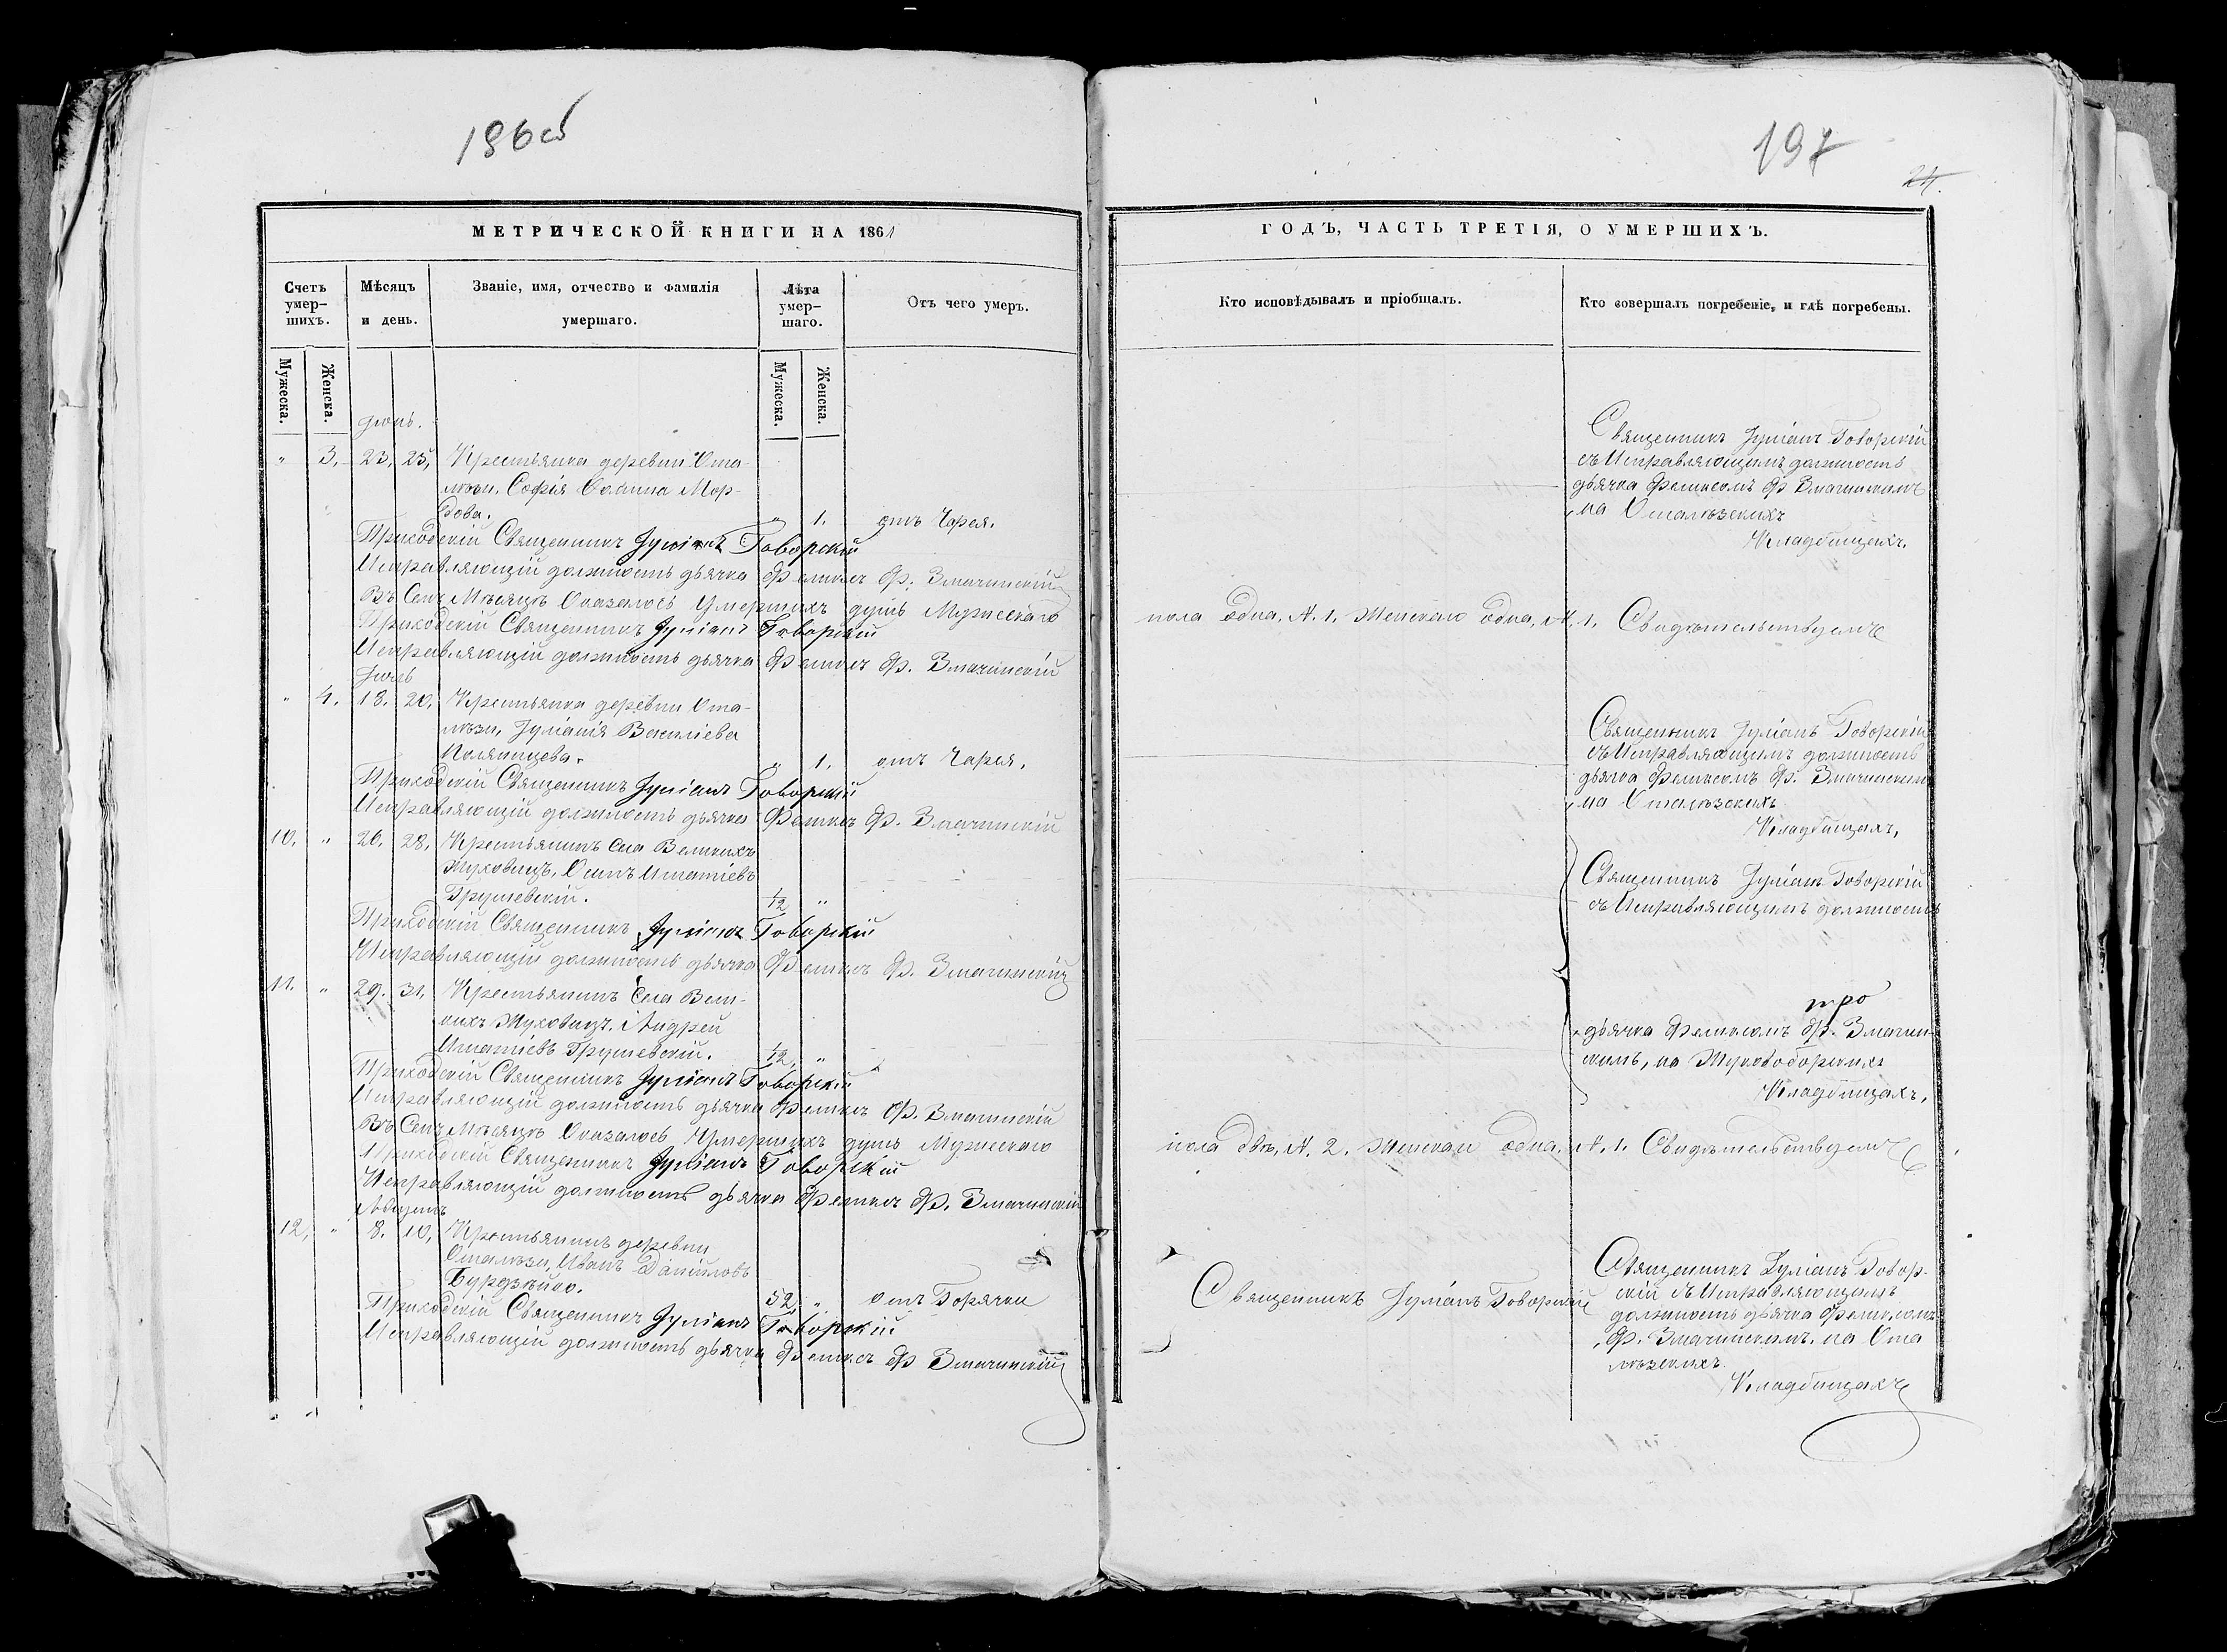 196об
197
24.
МЕТРИЧЕСКОЙ КНИГИ НА 1861
Счетъ умер-шихъ.
Мѣсяцъ и день.
Званіе, имя, отчество и фамилія умершаго.
Лѣта умер-шаго.
Отъ чего умеръ.
Мужеска.
Женска.
Мужеска.
Женска.
" 3. 23. 25. Крестьянка деревни Ома-
" 1. отъ Чарея.
Приходскій Священникъ Іуліанъ Говорскій
Исправляющій должность дьячка Феликсъ Ф. Змачинскій
Въ Семъ Мѣсяцѣ Оказалось Умершихъ душъ Мужескаго
Приходскій Священникъ Іуліанъ Говорскій
Исправляющій должность дьячка Феликсъ Ф. Змачинскій
Іюль
" 4. 18. 20. Крестьянка деревни Ома-
Іуліанія Василіева
" 1. отъ Чарея.
Приходскій Священникъ Іуліанъ Говорскій
Исправляющій должность дьячка Феликсъ Ф. Змачинскій
10. " 26. 28. Крестьянинъ Села Великихъ
Жуховичъ, Осипъ Игнатіевъ
Грушевскій. 1/12 "
Приходскій Священникъ Іуліанъ Говорскій
Исправляющій должность дьячка Феликсъ Ф. Змачинскій
11. " 29. 31. Крестьянинъ Села Вели-
кихъ Жуховичъ, Андрей
Игнатіевъ Грушевскій. 1/12. "
Приходскій Священникъ Іуліанъ Говорскій
Исправляющій должность дьячка Феликсъ Ф. Змачинскій
Въ Семъ Мѣсяцѣ Оказалось Умершихъ душъ Мужескаго
Приходскій Священникъ Іуліанъ Говорскій
Исправляющій должность дьячка Феликсъ Ф. Змачинскій
Августъ
12. " 8. 10. Крестьянинъ деревни
Иванъ Даніиловъ
52 " отъ Горячки
Приходскій Священникъ Іуліанъ Говорскій
Исправляющій должность дьячка Феликсъ Ф. Змачинскій
ГОДЪ, ЧАСТЬ ТРЕТІЯ, О УМЕРШИХЪ.
Кто исповѣдывалъ и пріобщалъ.
Кто совершалъ погребеніе, и гдѣ погребены.
Священникъ Іуліанъ Говорскій
съ Исправляющимъ должность
дьячка Феликсомъ Ф. Змачинскимъ
Кладбищахъ.
пола одна, № 1. Женскаго одна, № 1. Свидѣтельствуемъ
Священникъ Іуліанъ Говорскій
съ Исправляющимъ должность
дьячка Феликсомъ Ф. Змачинскимъ
Кладбищахъ,
Священникъ Іуліанъ Говорскій
съ Исправляющимъ должность
дьячка Феликсомъ Ф. Змачин-
скимъ, на
Кладбищахъ,
пола двѣ, № 2. Женскаго одна, № 1. Свидѣтельствуемъ
Священникъ Іуліанъ Говорскій
Священникъ Іуліанъ Говор-
скій съ Исправляющимъ
должность дьячка Феликсомъ
Ф. Змачинскимъ, на Ома
Кладбищахъ